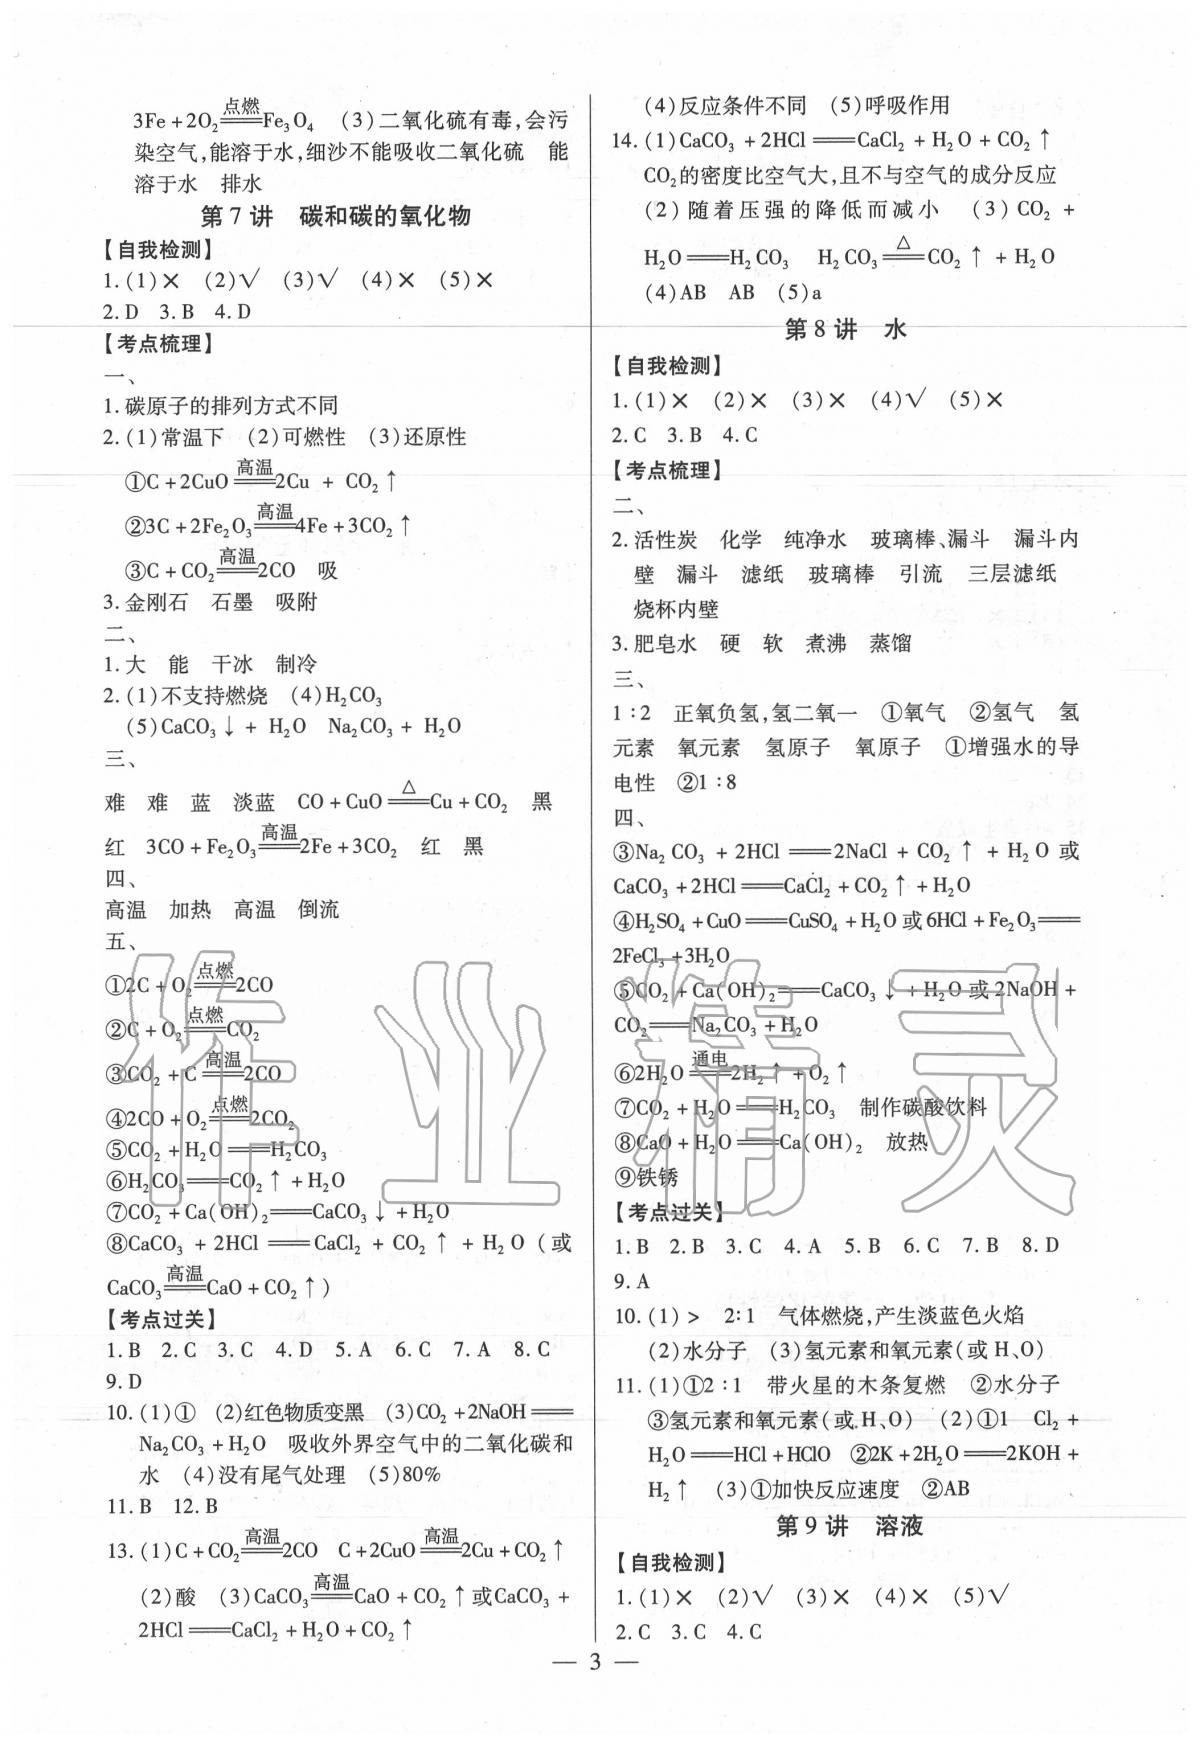 3Fe+2O₂ 点燃══ Fe₃O₄　(3)二氧化硫有毒,会污
染空气,能溶于水,细沙不能吸收二氧化硫　能
溶于水　排水
第 7 讲　碳和碳的氧化物
【自我检测】
1.(1)×　(2)√　(3)√　(4)×　(5)×
2.D　3.B　4.D
【考点梳理】
一、
1.碳原子的排列方式不同
2.(1)常温下　(2)可燃性　(3)还原性
①C+2CuO 高温══ 2Cu + CO₂↑
②3C+2Fe₂O₃ 高温══ 4Fe+3CO₂↑
③C+CO₂ 高温══ 2CO　吸
3.金刚石　石墨　吸附
二、
1.大　能　干冰　制冷
2.(1)不支持燃烧　(4)H₂CO₃
(5)CaCO₃↓+ H₂O　Na₂CO₃+ H₂O
三、
难　难　蓝　淡蓝　CO+CuO △══ Cu+CO₂　黑
红　3CO+Fe₂O₃ 高温══ 2Fe+3CO₂　红　黑
四、
高温　加热　高温　倒流
五、
①2C+O₂ 点燃══ 2CO
②C+O₂ 点燃══ CO₂
③CO₂+C 高温══ 2CO
④2CO+O₂ 点燃══ 2CO₂
⑤CO₂+H₂O ══ H₂CO₃
⑥H₂CO₃ ══ CO₂↑+H₂O
⑦CO₂+Ca(OH)₂ ══ CaCO₃↓+H₂O
⑧CaCO₃ + 2HCl ══ CaCl₂ + CO₂↑ + H₂O (或
CaCO₃ 高温══ CaO+CO₂↑)
【考点过关】
1.B　2.C　3.C　4.D　5.A　6.C　7.A　8.C
9.D
10.(1)①　(2)红色物质变黑　(3)CO₂+2NaOH ══
Na₂CO₃+H₂O　吸收外界空气中的二氧化碳和
水　(4)没有尾气处理　(5)80%
11.B　12.B
13.(1)C+CO₂ 高温══ 2CO　C+2CuO 高温══ 2Cu+CO₂↑
(2)酸　(3)CaCO₃ 高温══ CaO+CO₂↑或CaCO₃+
2HCl ══ CaCl₂+H₂O+CO₂↑
(4)反应条件不同　(5)呼吸作用
14.(1)CaCO₃+2HCl ══ CaCl₂+H₂O+CO₂↑
CO₂的密度比空气大,且不与空气的成分反应
(2)随着压强的降低而减小　(3)CO₂ +
H₂O ══ H₂CO₃　H₂CO₃ △══ CO₂↑+H₂O
(4)AB　AB　(5)a
第 8 讲　水
【自我检测】
1.(1)×　(2)×　(3)×　(4)√　(5)×
2.C　3.B　4.C
【考点梳理】
二、
2.活性炭　化学　纯净水　玻璃棒、漏斗　漏斗内
壁　漏斗　滤纸　玻璃棒　引流　三层滤纸
烧杯内壁
3.肥皂水　硬　软　煮沸　蒸馏
三、
1∶2　正氧负氢,氢二氧一　①氧气　②氢气　氢
元素　氧元素　氢原子　氧原子　①增强水的导
电性　②1∶8
四、
③Na₂CO₃ + 2HCl ══ 2NaCl + CO₂↑ + H₂O 或
CaCO₃+2HCl ══ CaCl₂+CO₂↑+H₂O
④H₂SO₄+CuO ══ CuSO₄+H₂O或6HCl+Fe₂O₃ ══
2FeCl₃+3H₂O
⑤CO₂+Ca(OH)₂ ══ CaCO₃↓+H₂O或2NaOH+
CO₂ ══ Na₂CO₃+H₂O
⑥2H₂O 通电══ 2H₂↑+O₂↑
⑦CO₂+H₂O ══ H₂CO₃　制作碳酸饮料
⑧CaO+H₂O ══ Ca(OH)₂　放热
⑨铁锈
【考点过关】
1.B　2.B　3.C　4.A　5.B　6.C　7.B　8.D
9.A
10.(1)>　2∶1　气体燃烧,产生淡蓝色火焰
(2)水分子　(3)氢元素和氧元素(或H、O)
11.(1)①2∶1　带火星的木条复燃　②水分子
③氢元素和氧元素(或H、O)　(2)①1　Cl₂+
H₂O ══ HCl+HClO　②2K+2H₂O ══ 2KOH+
H₂↑　(3)①加快反应速度　②AB
第 9 讲　溶液
【自我检测】
1.(1)×　(2)√　(3)×　(4)×　(5)√
2.C　3.C　4.C
— 3 —
作业精灵